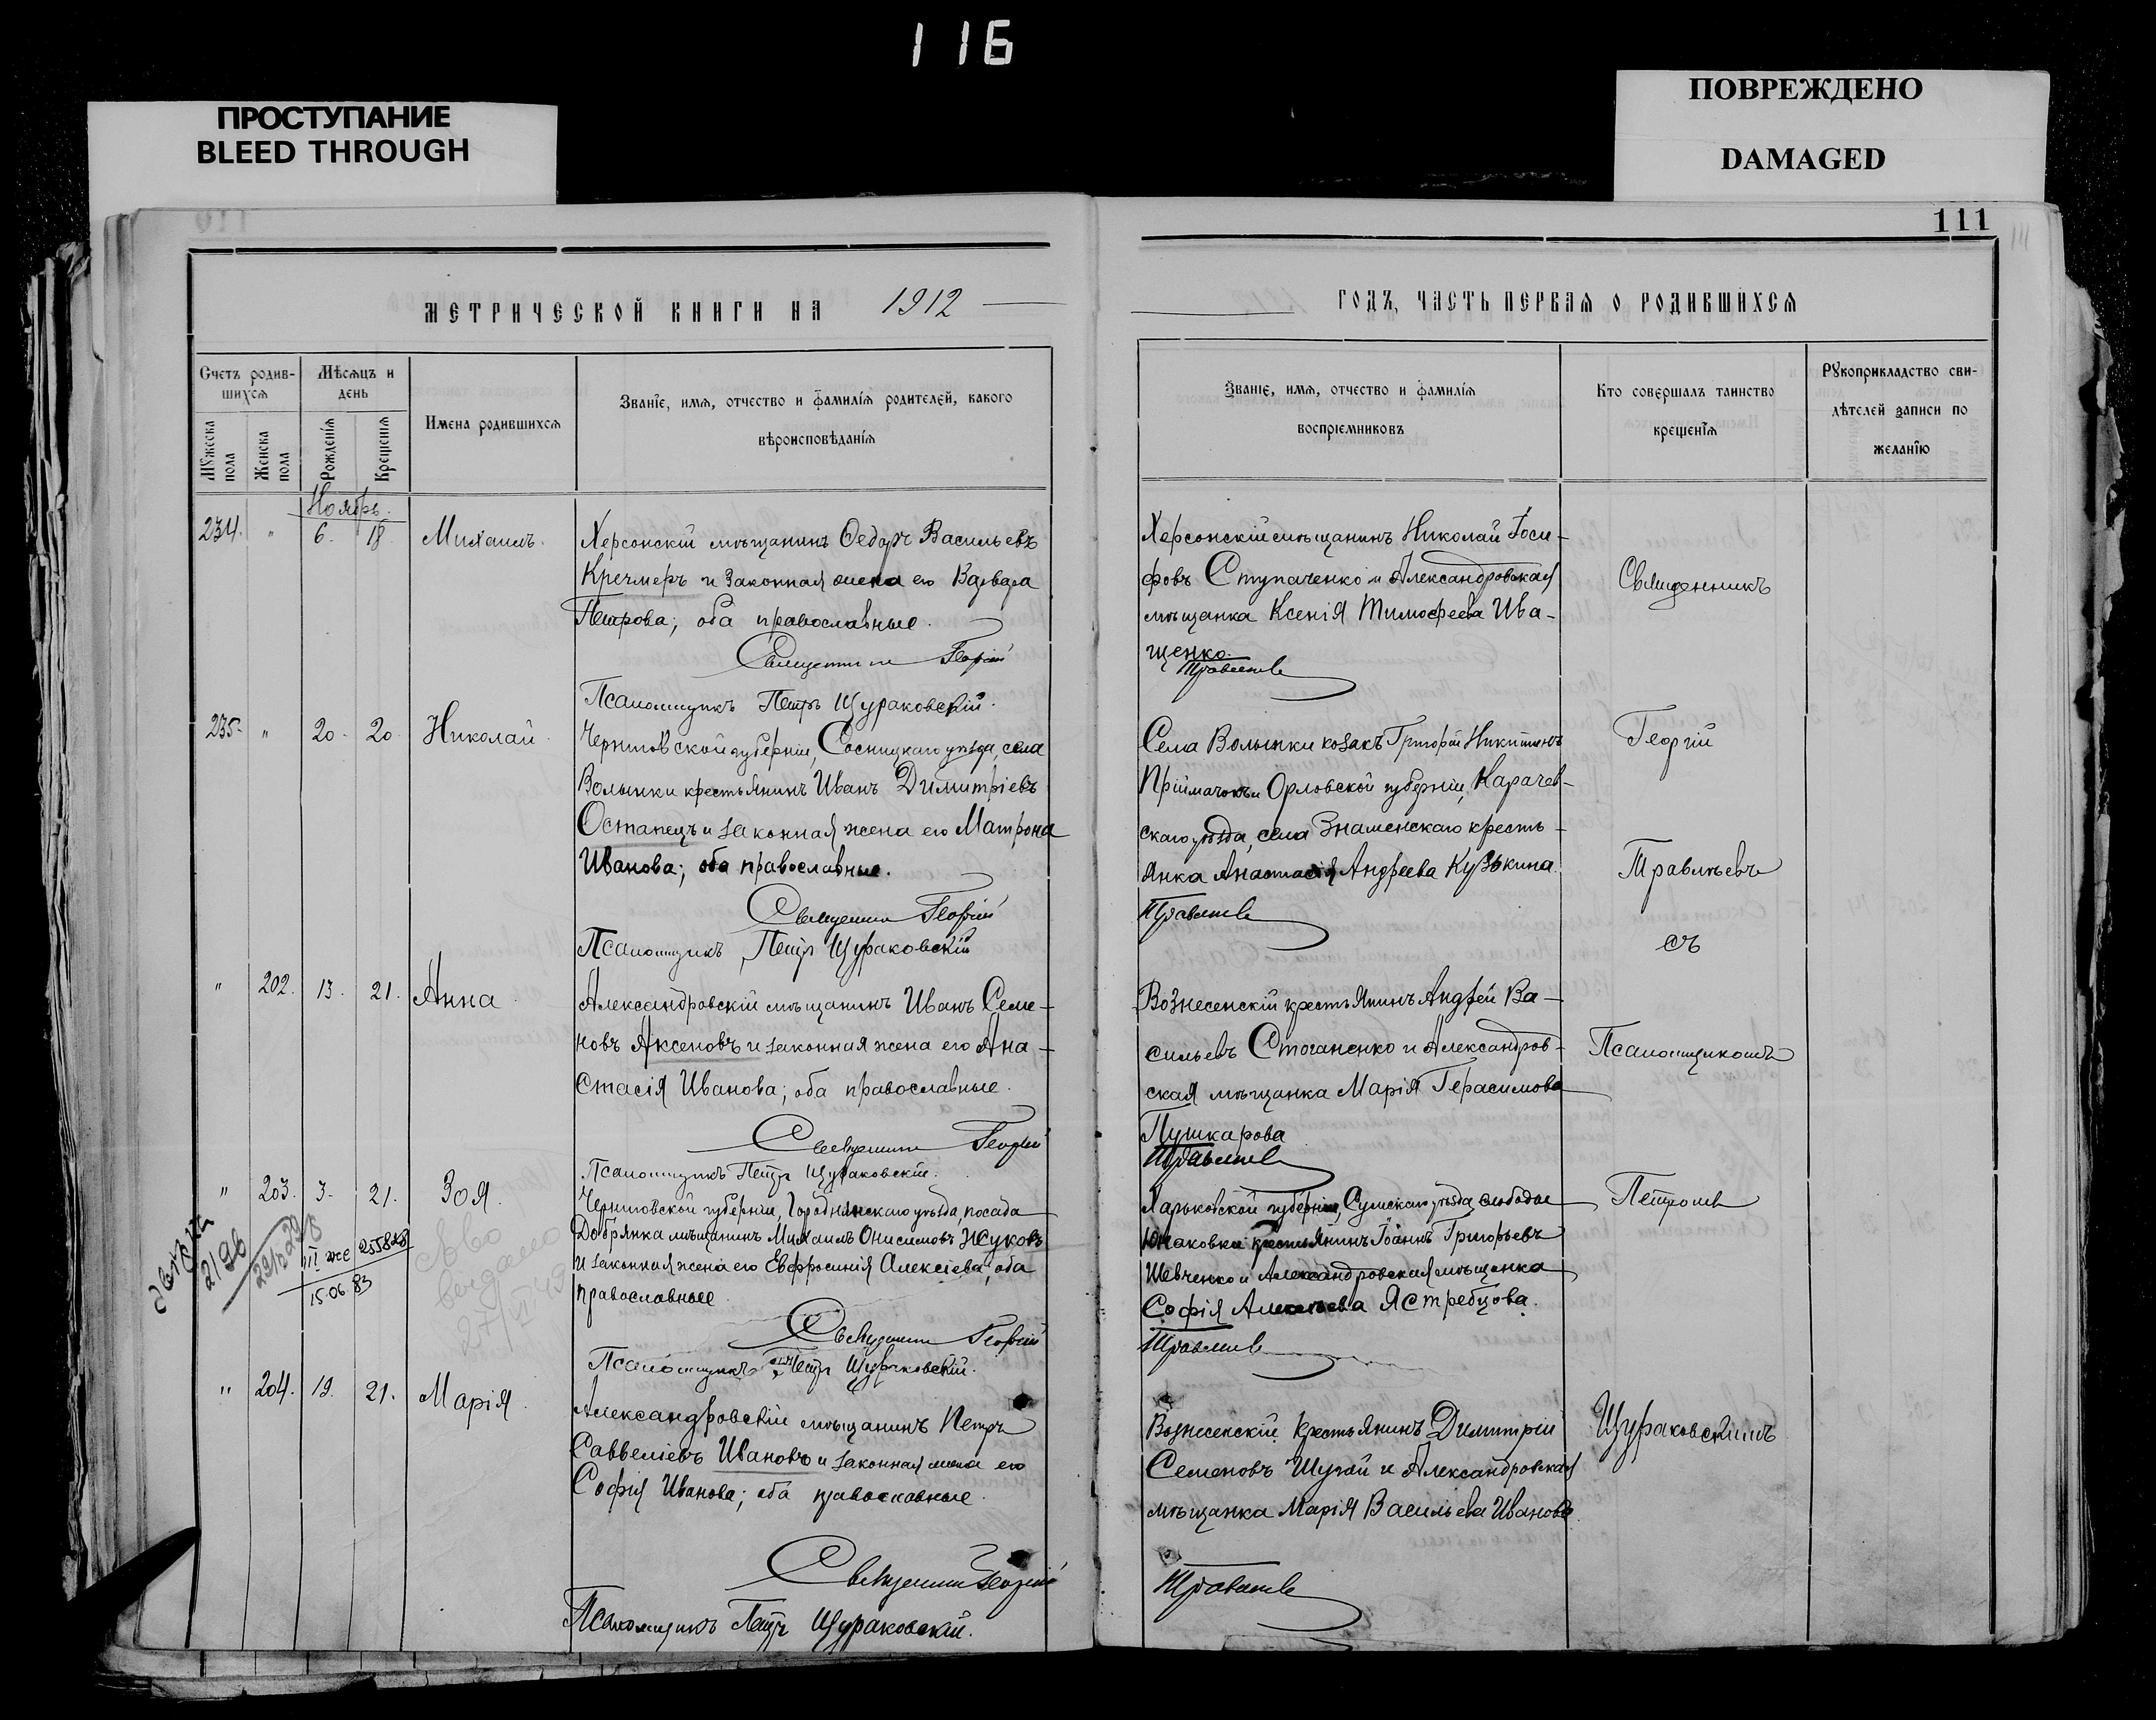 116
ПРОСТУПАНИЕ
BLEED THROUGH
ПОВРЕЖДЕНО
DAMAGED
111
МЕТРИЧЕСКОЙ КНИГИ НА 1912
ГОДЪ, ЧАСТЬ ПЕРВАЯ О РОДИВШИХСЯ
Счетъ родив-
шихся
Мѣсяцъ и
день
Мужеска
пола
Женска
пола
Рожденія
Крещенія
Имена родившихся
Званіе, имя, отчество и фамилія родителей, какого
вѣроисповѣданія
Званіе, имя, отчество и фамилія
воспріемниковъ
Кто совершалъ таинство
крещенія
Рукоприкладство сви-
дѣтелей записи по
желанію
Ноябрь.
234. " 6. 18. Михаилъ.
Херсонскій мѣщанинъ Ѳедоръ Васильевъ
Кречмеръ и законная жена его Варвара
Петрова; оба православные.
Священникъ Георгій
Псаломщикъ Петръ Щураковскій.
Херсонскій мѣщанинъ Николай Іоси-
фовъ Ступаченко и Александровская
мѣщанка Ксенія Тимофеева Ива-
щенко.
Травлѣевъ
Священникъ
235. " 20. 20. Николай.
Черниговской губерніи, Сосницкаго уѣзда, села
Волынки крестьянинъ Иванъ Димитріевъ
Остапецъ и законная жена его Матрона
Иванова; оба православные.
Священникъ Георгій
Псаломщикъ Петръ Щураковскій
Села Волынки козакъ Григорій Никитинъ
Пріймачокъ и Орловской губерніи, Карачев-
скаго уѣзда, села Знаменскаго кресть-
янка Анастасія Андреева Кузькина.
Травлѣевъ
Георгій
Травлѣевъ
съ
" 202. 13. 21. Анна.
Александровскій мѣщанинъ Иванъ Семе-
новъ Аксеновъ и законная жена его Ана-
стасія Иванова; оба православные.
Священникъ Георгій
Псаломщикъ Петръ Щураковскій.
Вознесенскій крестьянинъ Андрей Ва-
сильевъ Стоганенко и Александров-
ская мѣщанка Марія Герасимова
Пушкарова
Травлѣевъ
Псаломщикомъ
" 203. 3. 21. Зоя.
Черниговской губерніи, Городнянскаго уѣзда, посада
Добрянка мѣщанинъ Михаилъ Онисимовъ Жуковъ
и законная жена его Евфросинія Алексіева; оба
православные.
Священникъ Георгій
Псаломщикъ Петръ Щураковскій.
Харьковской губерніи, Сумскаго уѣзда, слободы
Юнаковки крестьянинъ Іоаннъ Григорьевъ
Шевченко и Александровская мѣщанка
Софія Алексѣева Ястребцова.
Травлѣевъ
Петромъ
2/96
III же 255828
15.06.83
27/VI 49
" 204. 19. 21. Марія.
Александровскій мѣщанинъ Петръ
Саввеліевъ Ивановъ и законная жена его
Софія Иванова; оба православные.
Священникъ Георгій
Псаломщикъ Петръ Щураковскій.
Вознесенскій крестьянинъ Димитрій
Семеновъ Шугай и Александровская
мѣщанка Марія Васильева Иванова.
Травлѣевъ
Щураковскимъ